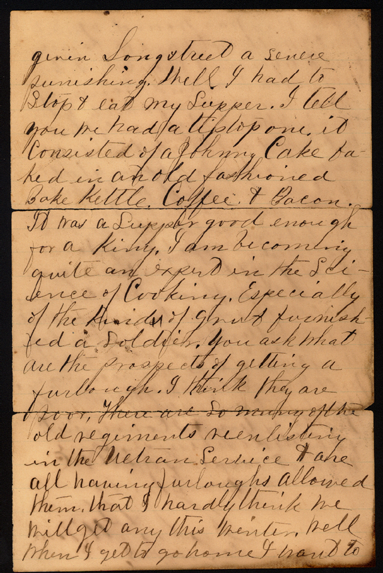 givin Longstreet a severe
punishing. Well I had to
Stop & eat my Supper. I tell
you we had a tiptop one. it
Consisted of a Johnny Cake ba-
ked in an old fashioned
Bake Kettle, Coffee & Bacon.
It was a Supper good enough
for a King. I am becoming
quite an expert in the Sci-
ence of Cooking. Especially
of the kinds of grub furnish-
ed a Soldier. You ask what
are the prospects of getting a
furlough. I think they are
poor. There are so many of the
old regiments reenlisting
in the Vetran Service & are
all having furloughs allowed
them. that I hardly think we
will get any this winter. Well
when I get to go home I want to